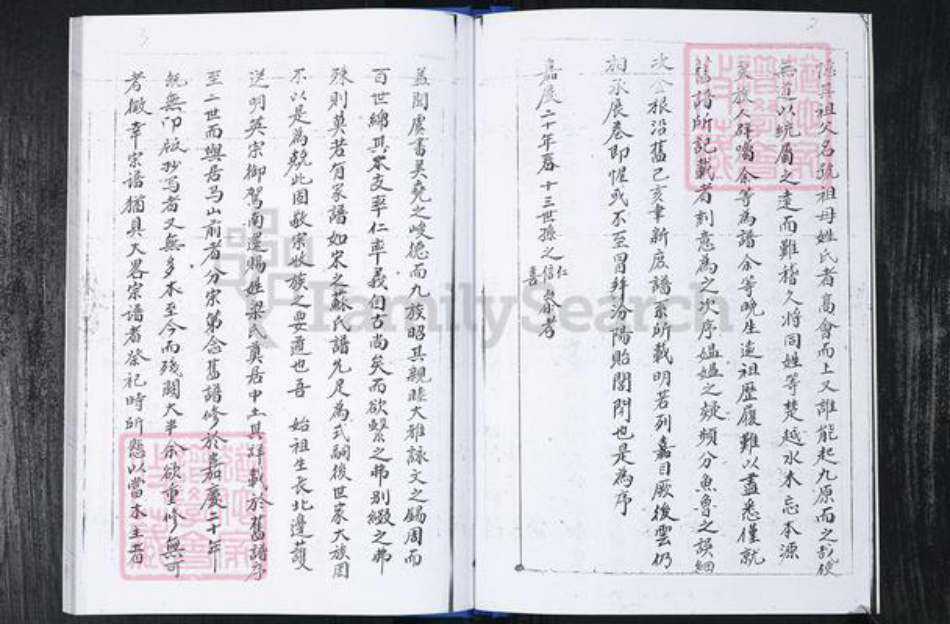 2
隐耳祖父名號祖母姓氏者高曾而上又誰能起九原而之
無達以統屬之遠而難稽久將同姓等楚越水木忘本源
矣族人群囑余等為譜余等晚生遠祖歷履難以盡悉僅就
舊譜所記載者刻意為之次序媼媼之疑頻分魚魯之誤細
次金根沿舊己亥聿新度譜系所載明若列嘉目厥後雲仍
相承展卷即惺或不至冒拜汾陽貽閭閈也是為序
嘉慶二十年春十三世孫之仁信喜
3
蓋聞虞書美堯之峻德而九族昭其親睦大雅詠文之錫周而
百世綿其本支率仁率義自古尚矣而欲繫之弗別綴之弗
殊則莫若有家譜如宋之蘇氏譜先足為式嗣後世家大族固
不以是為兢兢此固敬宗收族之要道也吾 始祖生長北邊護
送明英宗御駕南還賜姓梁氏奠居中土其詳載於舊譜序
至二世而與居马山前者分宗第念舊譜修於嘉慶二十年
既無印版抄写者又無多本至今而殘闕大半余欲重修無可
者檄幸宗譜猶具大畧宗譜者祭祀時所懸以當木主者
FamilySearch